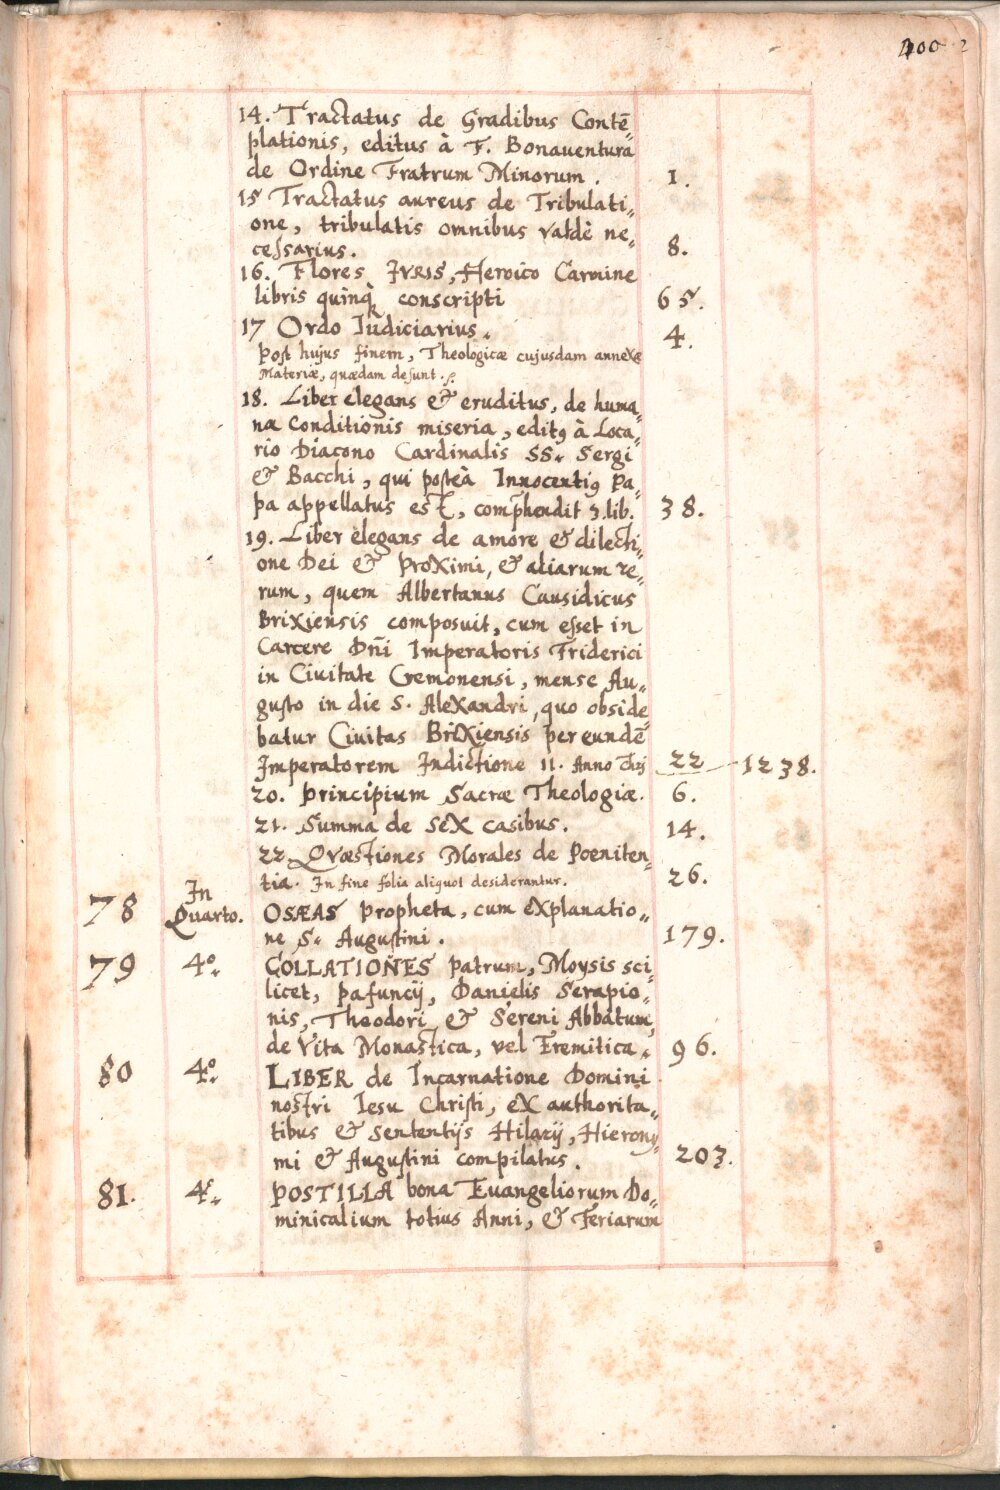 14. Tractatus de Gradibus Contē„
plationis, editus à F. Bonauentura
de Ordine Fratrum Minorum. 1.
15 Tractatus aureus de Tribulati„
one, tribulatis omnibus valdè ne„
ceſsarius. 8.
16. Flores IVRIS, Heroico Carmine
libris quinq; conscripti 65.
17 Ordo Iudiciarius. 4.
Post hujus finem, Theologicæ cujusdam annexæ
Materiæ, quædam desunt.
18. Liber elegans & eruditus, de huma„
na Conditionis miseria, editꝰ à Loca„
rio Diacono Cardinalis SS. Sergi
& Bacchi, qui posteà Innocentiꝰ Pa„
pa appellatus est, comp̄hendit 3. lib. 38.
19. Liber elegans de amore & dilecti„
one Dei & Proximi, & aliarum re„
rum, quem Albertanus Causidicus
Brixiensis composuit, cum eſset in
Carcere Dn̄i Imperatoris Friderici
in Ciuitate Cremonensi, mense Au„
gusto in die S. Alexandri, quo obside
batur Ciuitas Brixiensis per eundē
Imperatorem Indictione 11. Anno 22 1238.
20. Principium Sacræ Theologiæ. 6.
21. Summa de sex casibus. 14.
22. Quæstiones Morales de Poeniten„
tia. In fine folia aliquot desiderantur. 26.
78 In Quarto. OSÆAS Propheta, cum explanatio„
ne S. Augustini. 179.
79 4º. COLLATIONES Patrum, Moysis sci„
licet, Pafuncij, Danielis Serapio„
nis, Theodori & Sereni Abbatum,
de Vita Monastica, vel Eremitica. 96.
80 4º. LIBER de Incarnatione Domini
nostri Iesu Christi, ex authorita„
tibus & Sententijs Hilarij, Hierony„
mi & Augustini compilatus. 203.
81. 4º. POSTILLA bona Euangeliorum Do„
minicalium totius Anni, & Feriarum